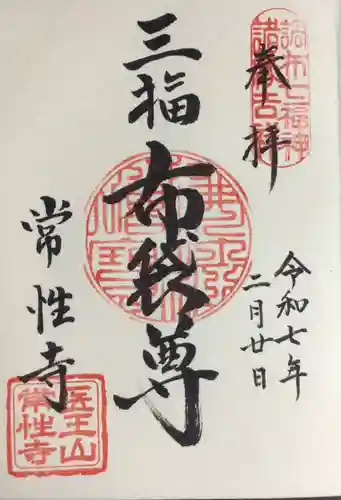 奉拝
調布七福神
令和七年
二月廿日
三福
布袋尊
常性寺
医王山
常性寺